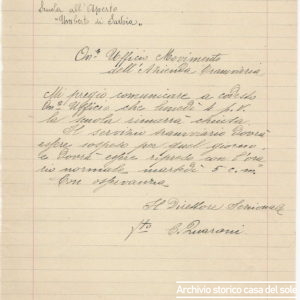 Scuola all'Aperto
"Umberto di Savoia"
On. Ufficio Movimento
dell'Azienda Tranviaria.
Mi pregio comunicare a codesto
On. Ufficio che lunedì 4 p.v.
la scuola rimarrà chiusa.
Il servizio tranviario dovrà
essere sospeso per quel giorno
e dovrà essere ripreso con l'ora
rio normale martedì 5 c.m.
Con osservanza
Il Direttore Sezionale
Archivio storico casa del sole